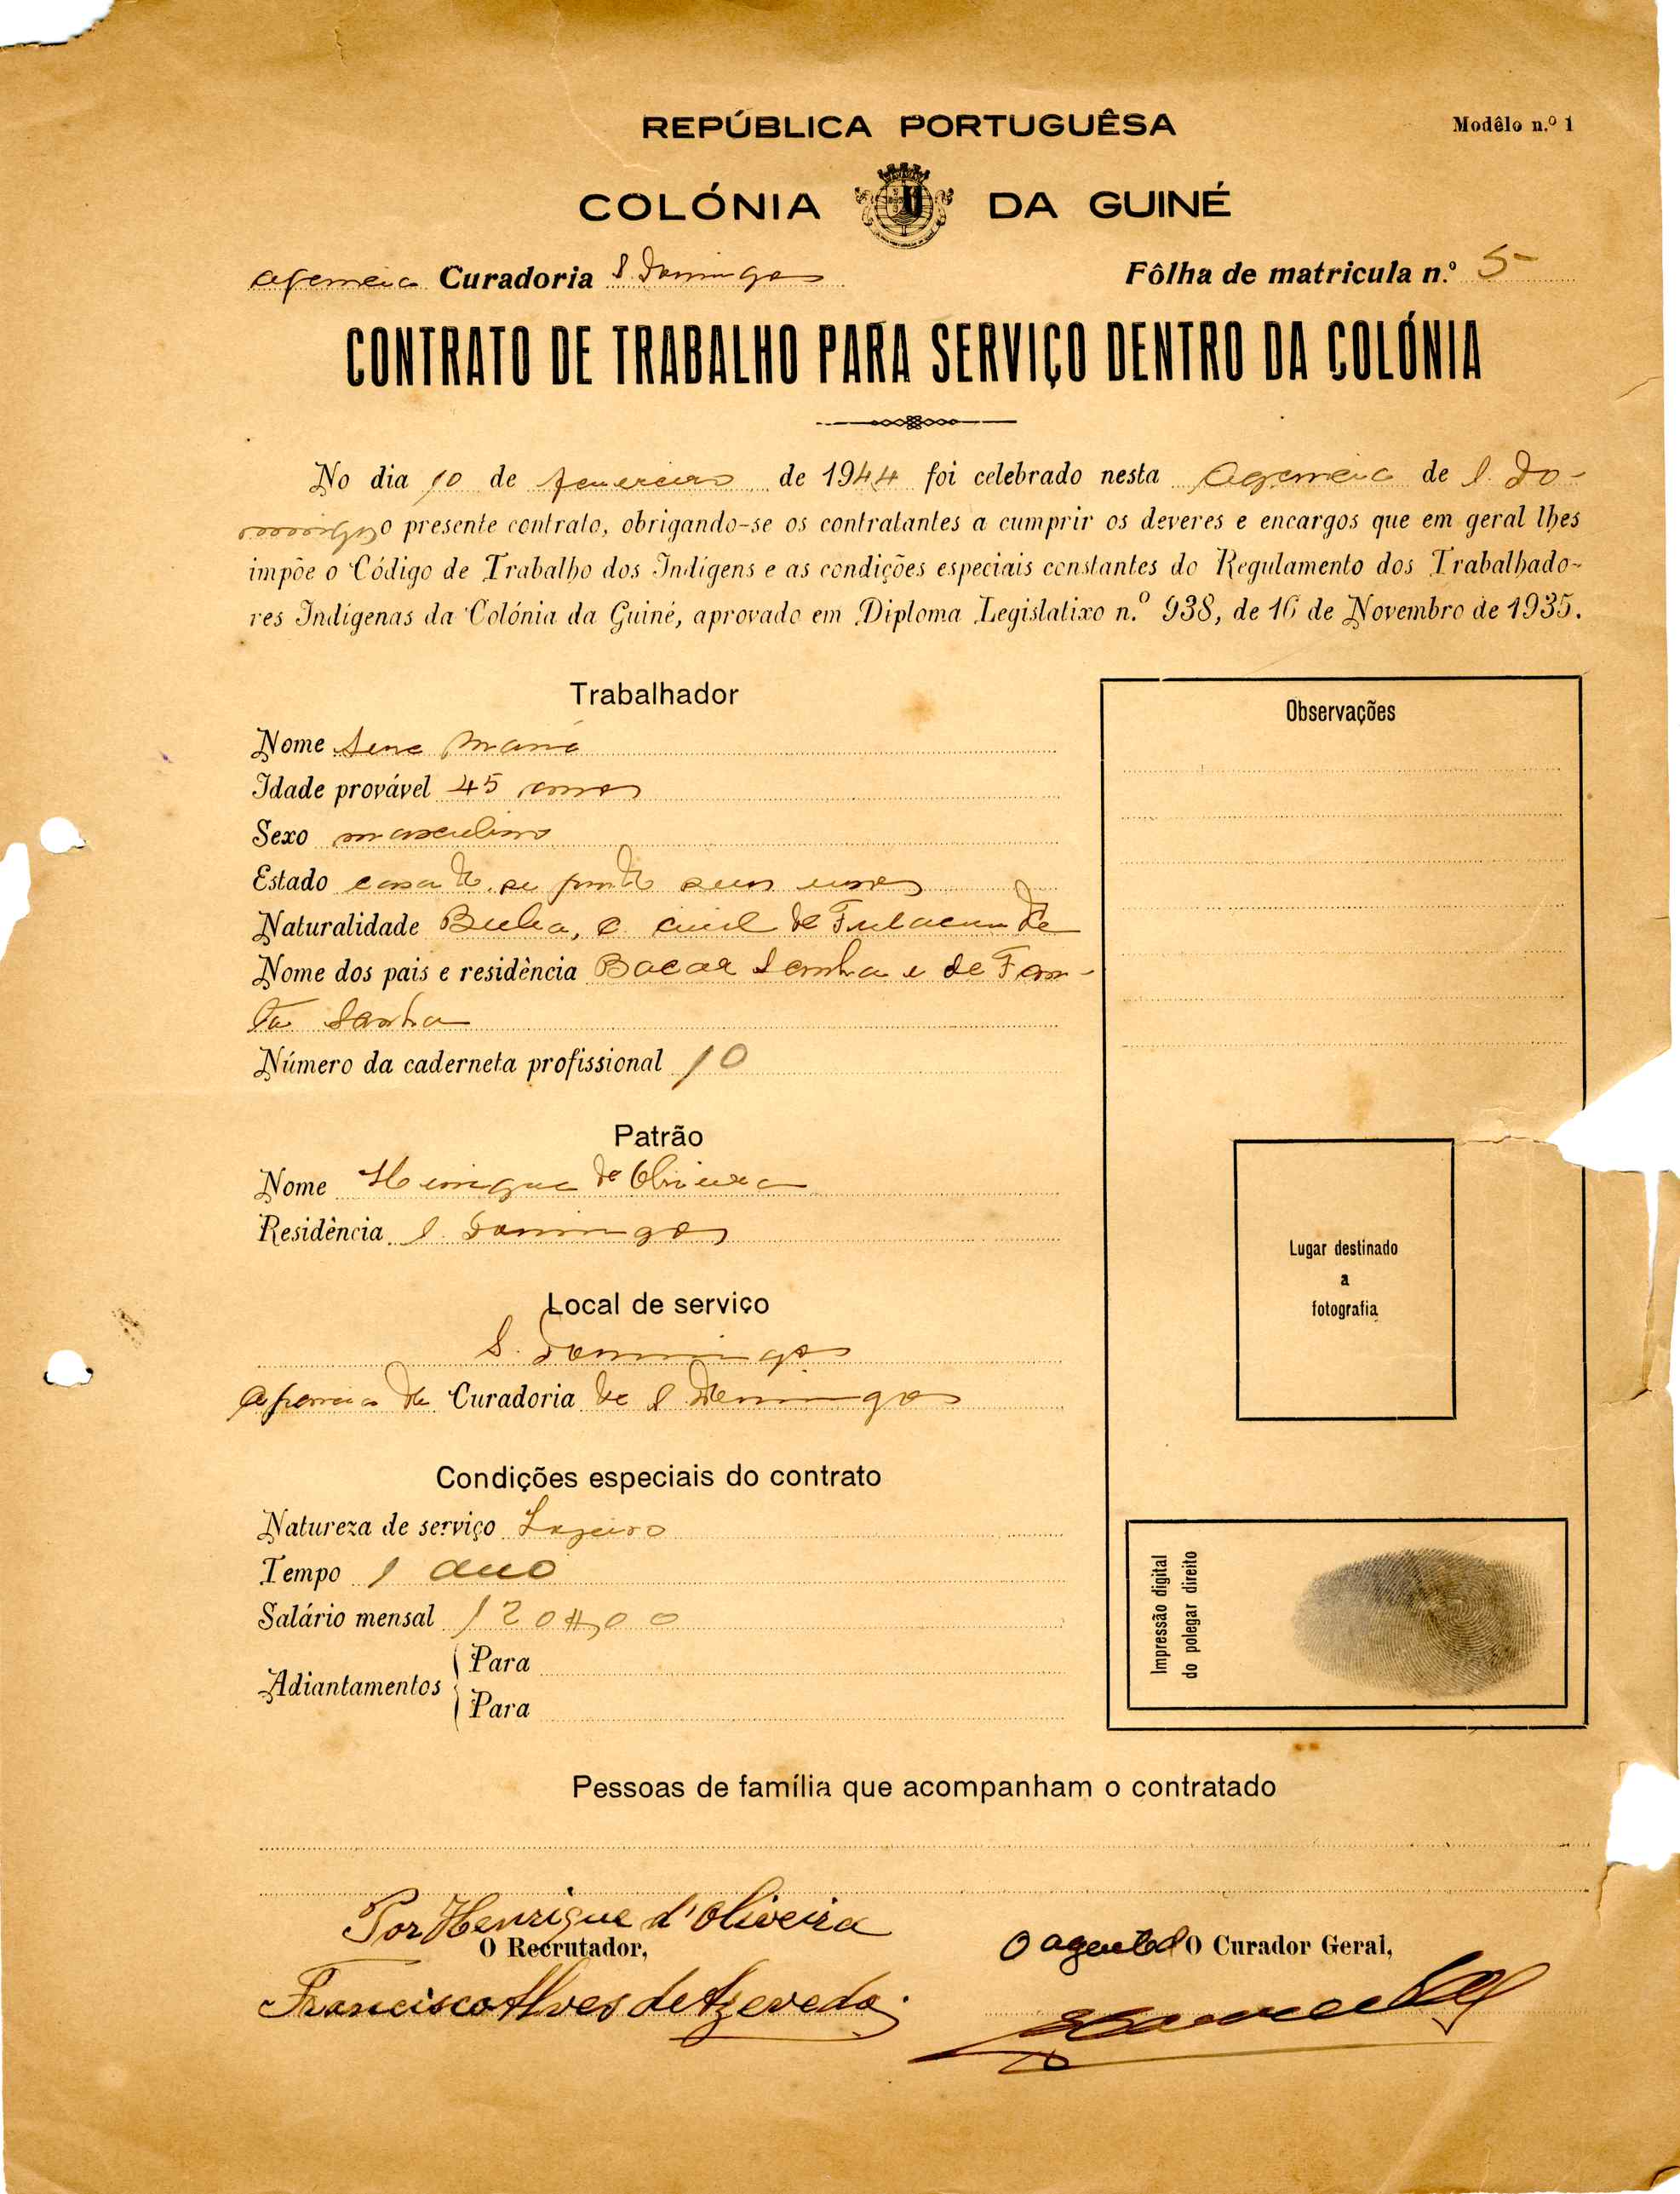 REPÚBLICA PORTUGUÊSA
Modêlo n.º 1
COLÓNIA DA GUINÉ
Agencia Curadoria S. Domingos
Fôlha de matricula n.º 5
CONTRATO DE TRABALHO PARA SERVIÇO DENTRO DA COLÓNIA
No dia 10 de fevereiro de 1944 foi celebrado nesta Agencia de S. Do-
mingos o presente contrato, obrigando-se os contratantes a cumprir os deveres e encargos que em geral lhes
impõe o Código de Trabalho dos Indígens e as condições especiais constantes do Regulamento dos Trabalhado-
res Indígenas da Colónia da Guiné, aprovado em Diploma Legislatixo n.º 938, de 16 de Novembro de 1935.
Trabalhador
Observações
Nome Sene Mané
Idade provável 45 anos
Sexo masculino
Estado casado
Naturalidade Buba, c. civil de Fulacunda
Nome dos pais e residência Bacar Sambu e de Fan-
ta
Número da caderneta profissional 10
Patrão
Nome Henrique de Oliveira
Residência S. Domingos
Lugar destinado
a
fotografia
Local de serviço
S. Domingos
Agencia da Curadoria de S. Domingos
Condições especiais do contrato
Natureza de serviço
Tempo 1 ano
Salário mensal 120$00
Adiantamentos
Para
Para
Impressão digital
do polegar direito
Pessoas de família que acompanham o contratado
Por Henrique d'Oliveira
O Recrutador,
O agente do O Curador Geral,
Francisco Alves de Azevedo.